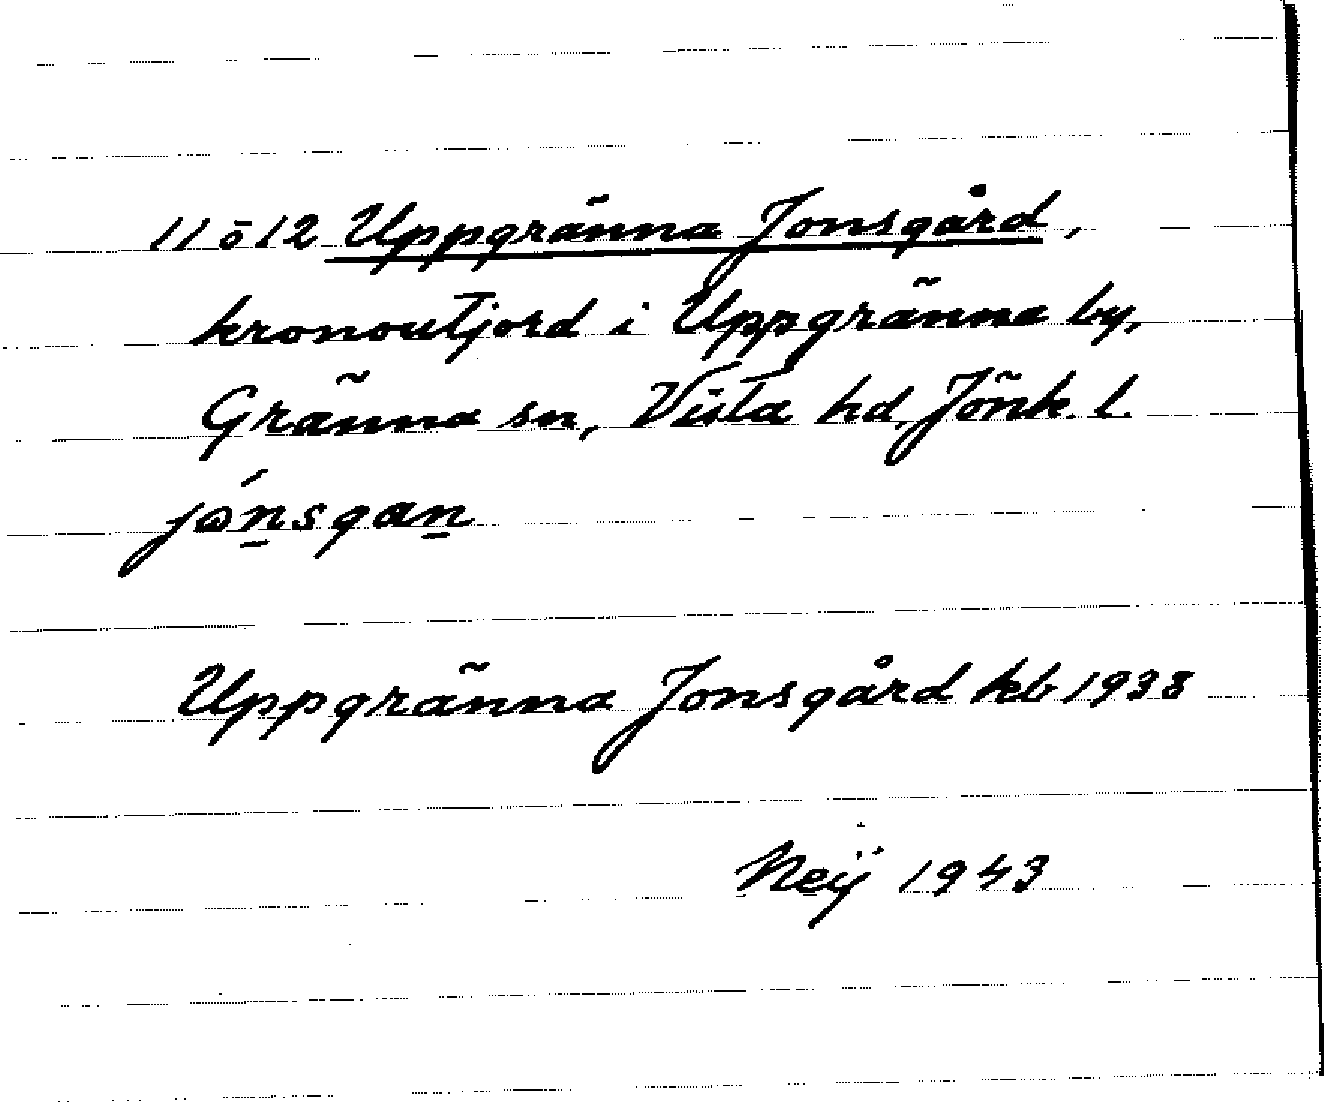 11 o 12 Uppgränna Jonsgård,
kronoutjord i Uppgränna by,
Gränna sn, Vista hd, Jönk. l.
jónsgan
Uppgränna Jonsgård kb 1938
Neij 1943